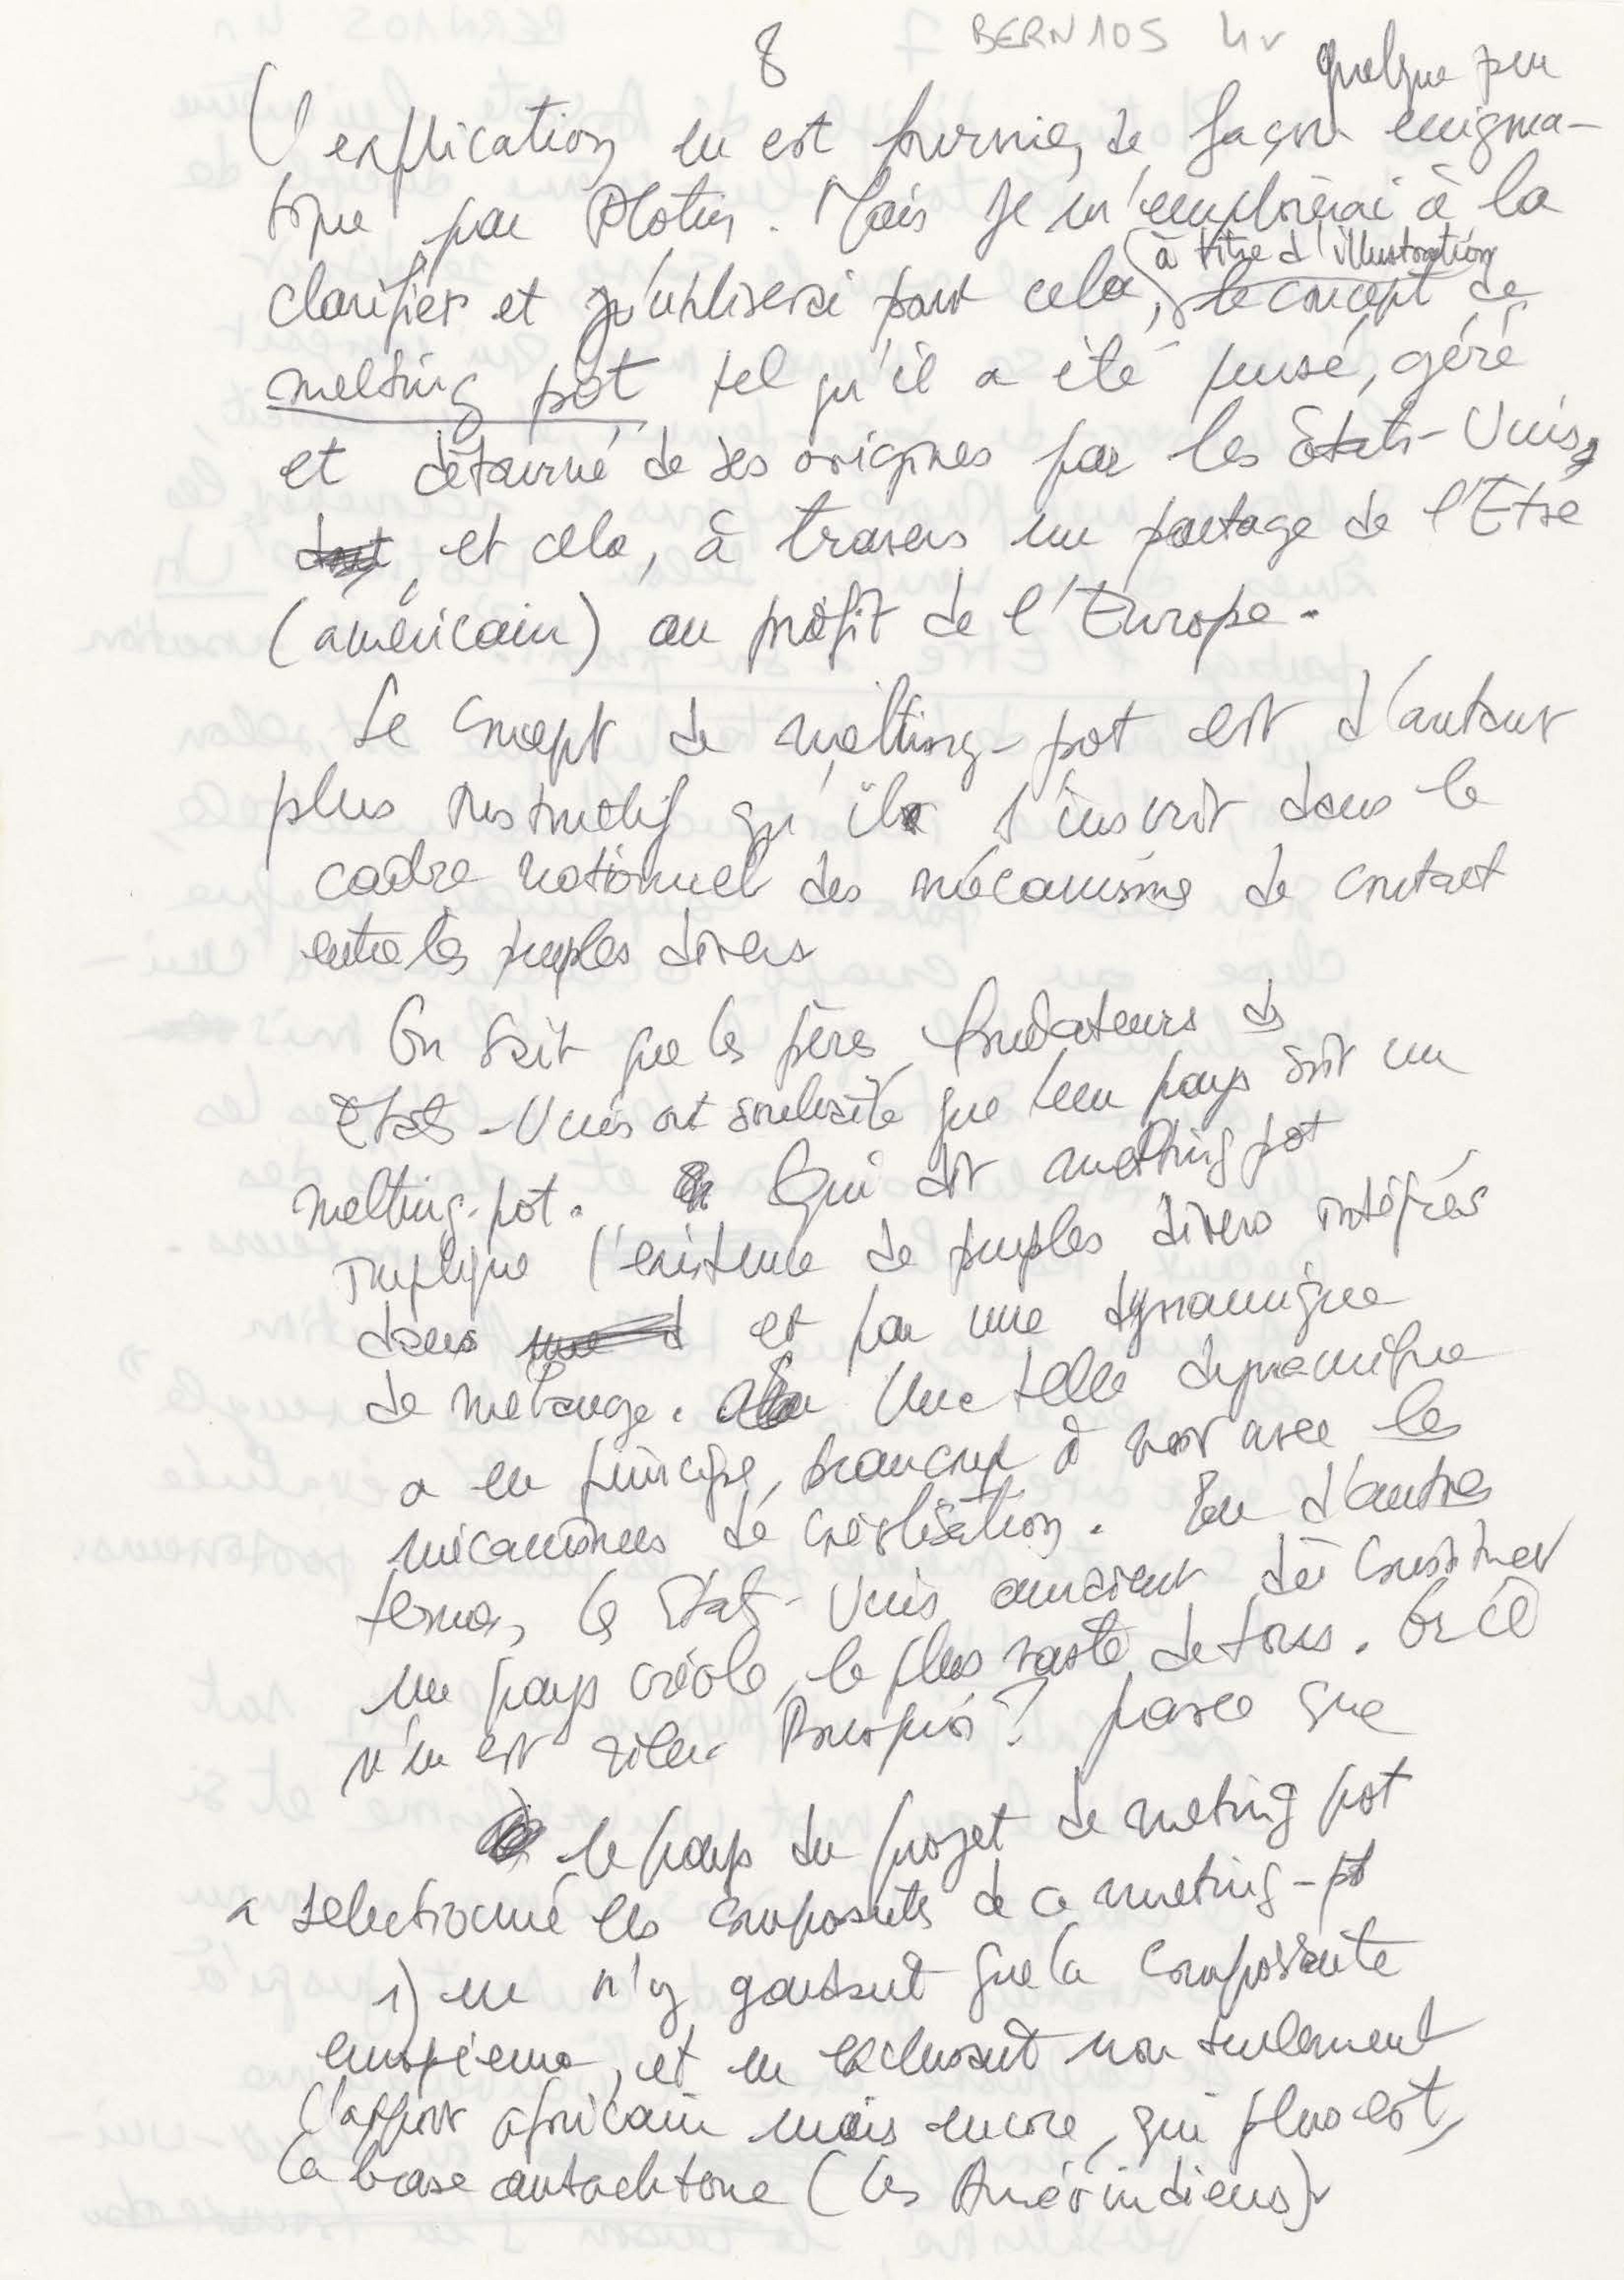 8
BERN105 4v
quelque peu
L'explication en est fournie, de façon enigma-
tique par Plotin. Mais je m'emploierai à la
à titre d'illustration
clarifier et j'utiliserai pour cela, le concept de
melting pot tel qu'il a été pensé, géré
et détourné de ses origines par les Etats-Unis,
dont, et cela, à travers un partage de l'Etre
(américain) au profit de l'Europe.
Le concept de melting-pot est d'autant
plus instructif qu'il s'inscrit dans le
cadre notionnel des mécanismes de contact
entre les peuples divers
On sait que les pères fondateurs des
Etats-Unis ont souhaité que leur pays soit un
melting-pot. Qui dit melting pot
implique l'existence de peuples divers intégrés
dans une d et par une dynamique
de mélange. Une telle dynamique
a en principe, beaucoup à voir avec les
mécanismes de créolisation. En d'autres
termes, les Etats-Unis auraient dû constituer
un pays créole, le plus vaste de tous. Or ce
n'en est rien. Pourquoi? parce que
le pays du projet de melting pot
a selectionné les composants de ce melting-pot
1) en n'y gardant que la composante
européenne, et en excluant non seulement
l'apport africain mais encore, qui plus est,
la base autochtone (les Amérindiens)